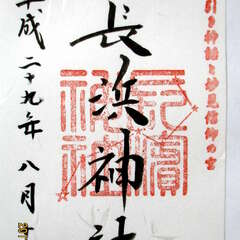 引き神話と妙見信仰の宮
長浜神社
平成二十九年八月